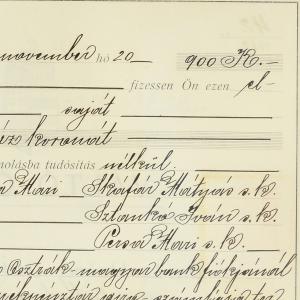 november hó 20 900 K.-
fizessen Ön ezen el-
saját
koronát
molásba tudósítás nélkül.
Mári Skáfár Mátyás s.k.
Sztankó Iván s.k.
Persa Mári s.k.
Osztrák-magyar bank fiókjánál